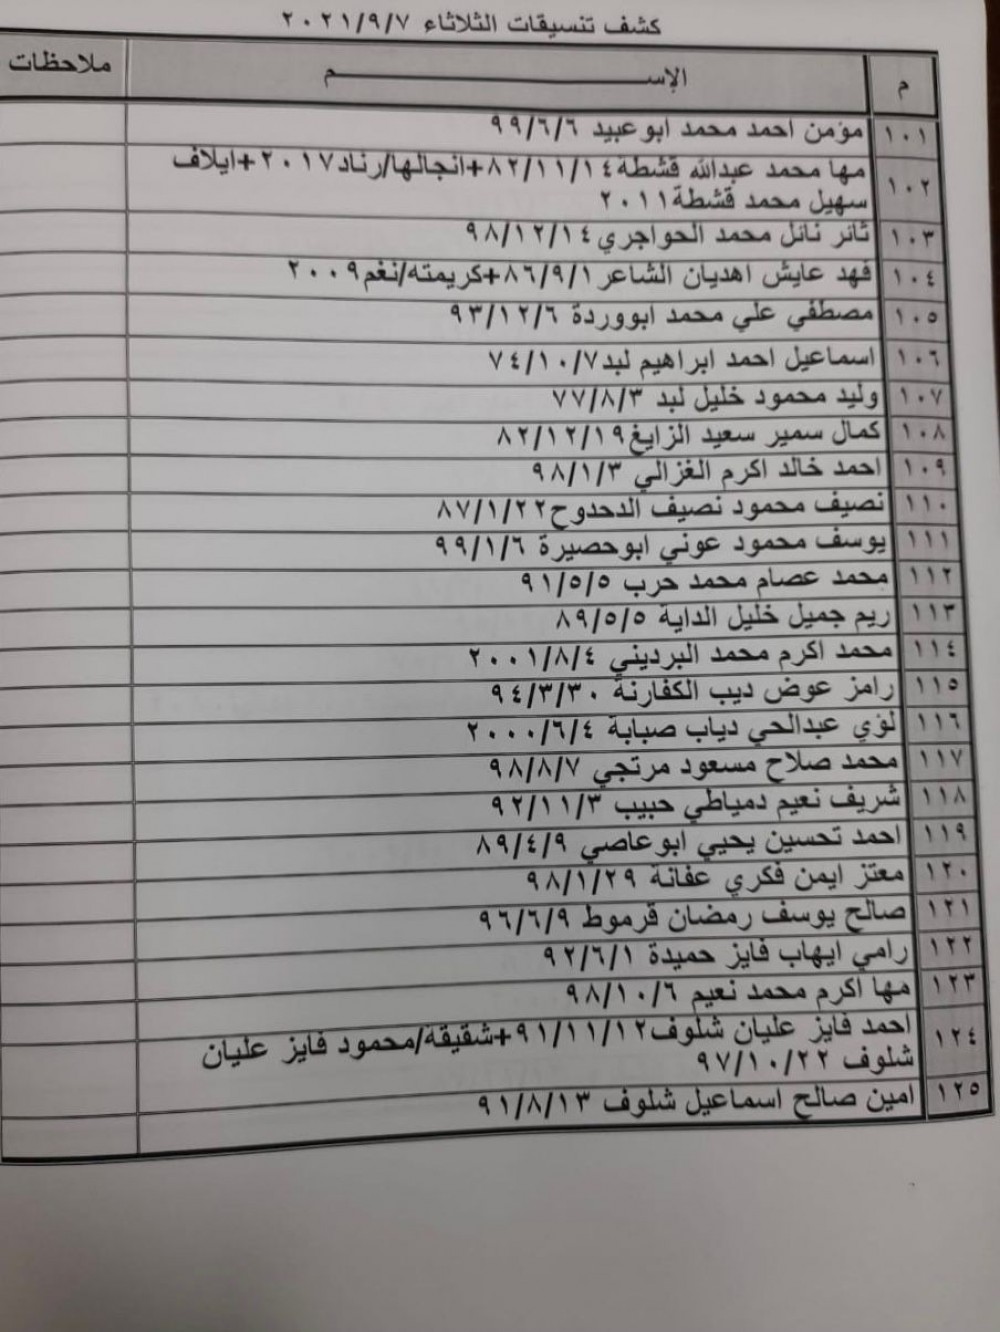 كشف تنسيقات الثلاثاء ٢٠٢١/٩/٧
م الإســـــــــــــــــم ملاحظات
١٠١ مؤمن احمد محمد ابوعبيد ٩٩/٦/٦
١٠٢ مها محمد عبدالله قشطة ٨٢/١١/١٤+انجالها/رناد٢٠١٧+ايلاف
سهيل محمد قشطة٢٠١١
١٠٣ ثائر نائل محمد الحواجري ٩٨/١٢/١٤
١٠٤ فهد عايش اهديان الشاعر ٨٦/٩/١+كريمته/نغم٢٠٠٩
١٠٥ مصطفي علي محمد ابووردة ٩٣/١٢/٦
١٠٦ اسماعيل احمد ابراهيم لبد ٧٤/١٠/٧
١٠٧ وليد محمود خليل لبد ٧٧/٨/٣
١٠٨ كمال سمير سعيد الزايغ ٨٢/١٢/١٩
١٠٩ احمد خالد اكرم الغزالي ٩٨/١/٣
١١٠ نصيف محمود نصيف الدحدوح ٨٧/١/٢٢
١١١ يوسف محمود عوني ابوحصيرة ٩٩/١/٦
١١٢ محمد عصام محمد حرب ٩١/٥/٥
١١٣ ريم جميل خليل الداية ٨٩/٥/٥
١١٤ محمد اكرم محمد البرديني ٢٠٠١/٨/٤
١١٥ رامز عوض ديب الكفارنة ٩٤/٣/٣٠
١١٦ لؤي عبدالحي دياب صبابة ٢٠٠٠/٦/٤
١١٧ محمد صلاح مسعود مرتجي ٩٨/٨/٧
١١٨ شريف نعيم دمياطي حبيب ٩٢/١١/٣
١١٩ احمد تحسين يحيي ابوعاصي ٨٩/٤/٩
١٢٠ معتز ايمن فكري عفانة ٩٨/١/٢٩
١٢١ صالح يوسف رمضان قرموط ٩٦/٦/٩
١٢٢ رامي ايهاب فايز حميدة ٩٢/٦/١
١٢٣ مها اكرم محمد نعيم ٩٨/١٠/٦
١٢٤ احمد فايز عليان شلوف ٩١/١١/١٢+شقيقه/محمود فايز عليان
شلوف ٩٧/١٠/٢٢
١٢٥ امين صالح اسماعيل شلوف ٩١/٨/١٣